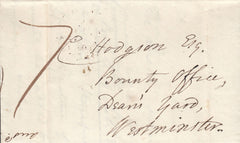 7
Hodgson Esq.
Bounty Office,
Dean's Yard,
Westminster.